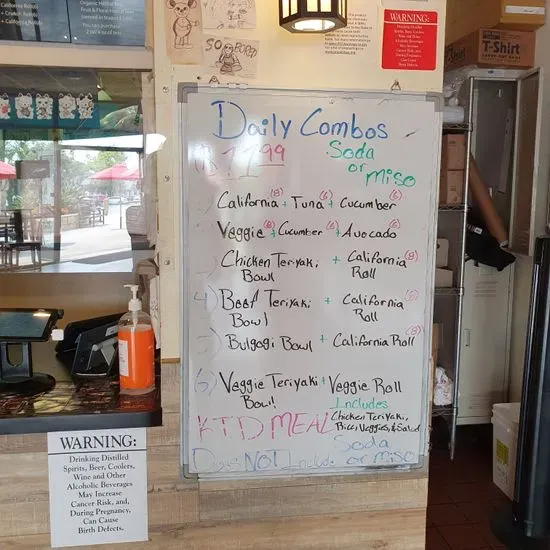 SO BORED
WARNING:
T-Shirt
Daily Combos
$11.99
Soda
or
Miso
California (8) + Tuna (6) + Cucumber (6)
Veggie (8) + Cucumber (6) + Avocado (6)
Chicken Teriyaki + California (8)
Bowl Roll
4) Beef Teriyaki + California (8)
Bowl Roll
5) Bulgogi Bowl + California Roll (8)
6) Veggie Teriyaki + Veggie Roll
Bowl!
Includes
KID MEAL Chicken Teriyaki,
Rice, Veggies, & Salad
Does NOT Include Soda
or miso
WARNING:
Drinking Distilled
Spirits, Beer, Coolers,
Wine and Other
Alcoholic Beverages
May Increase
Cancer Risk, and,
During Pregnancy,
Can Cause
Birth Defects.